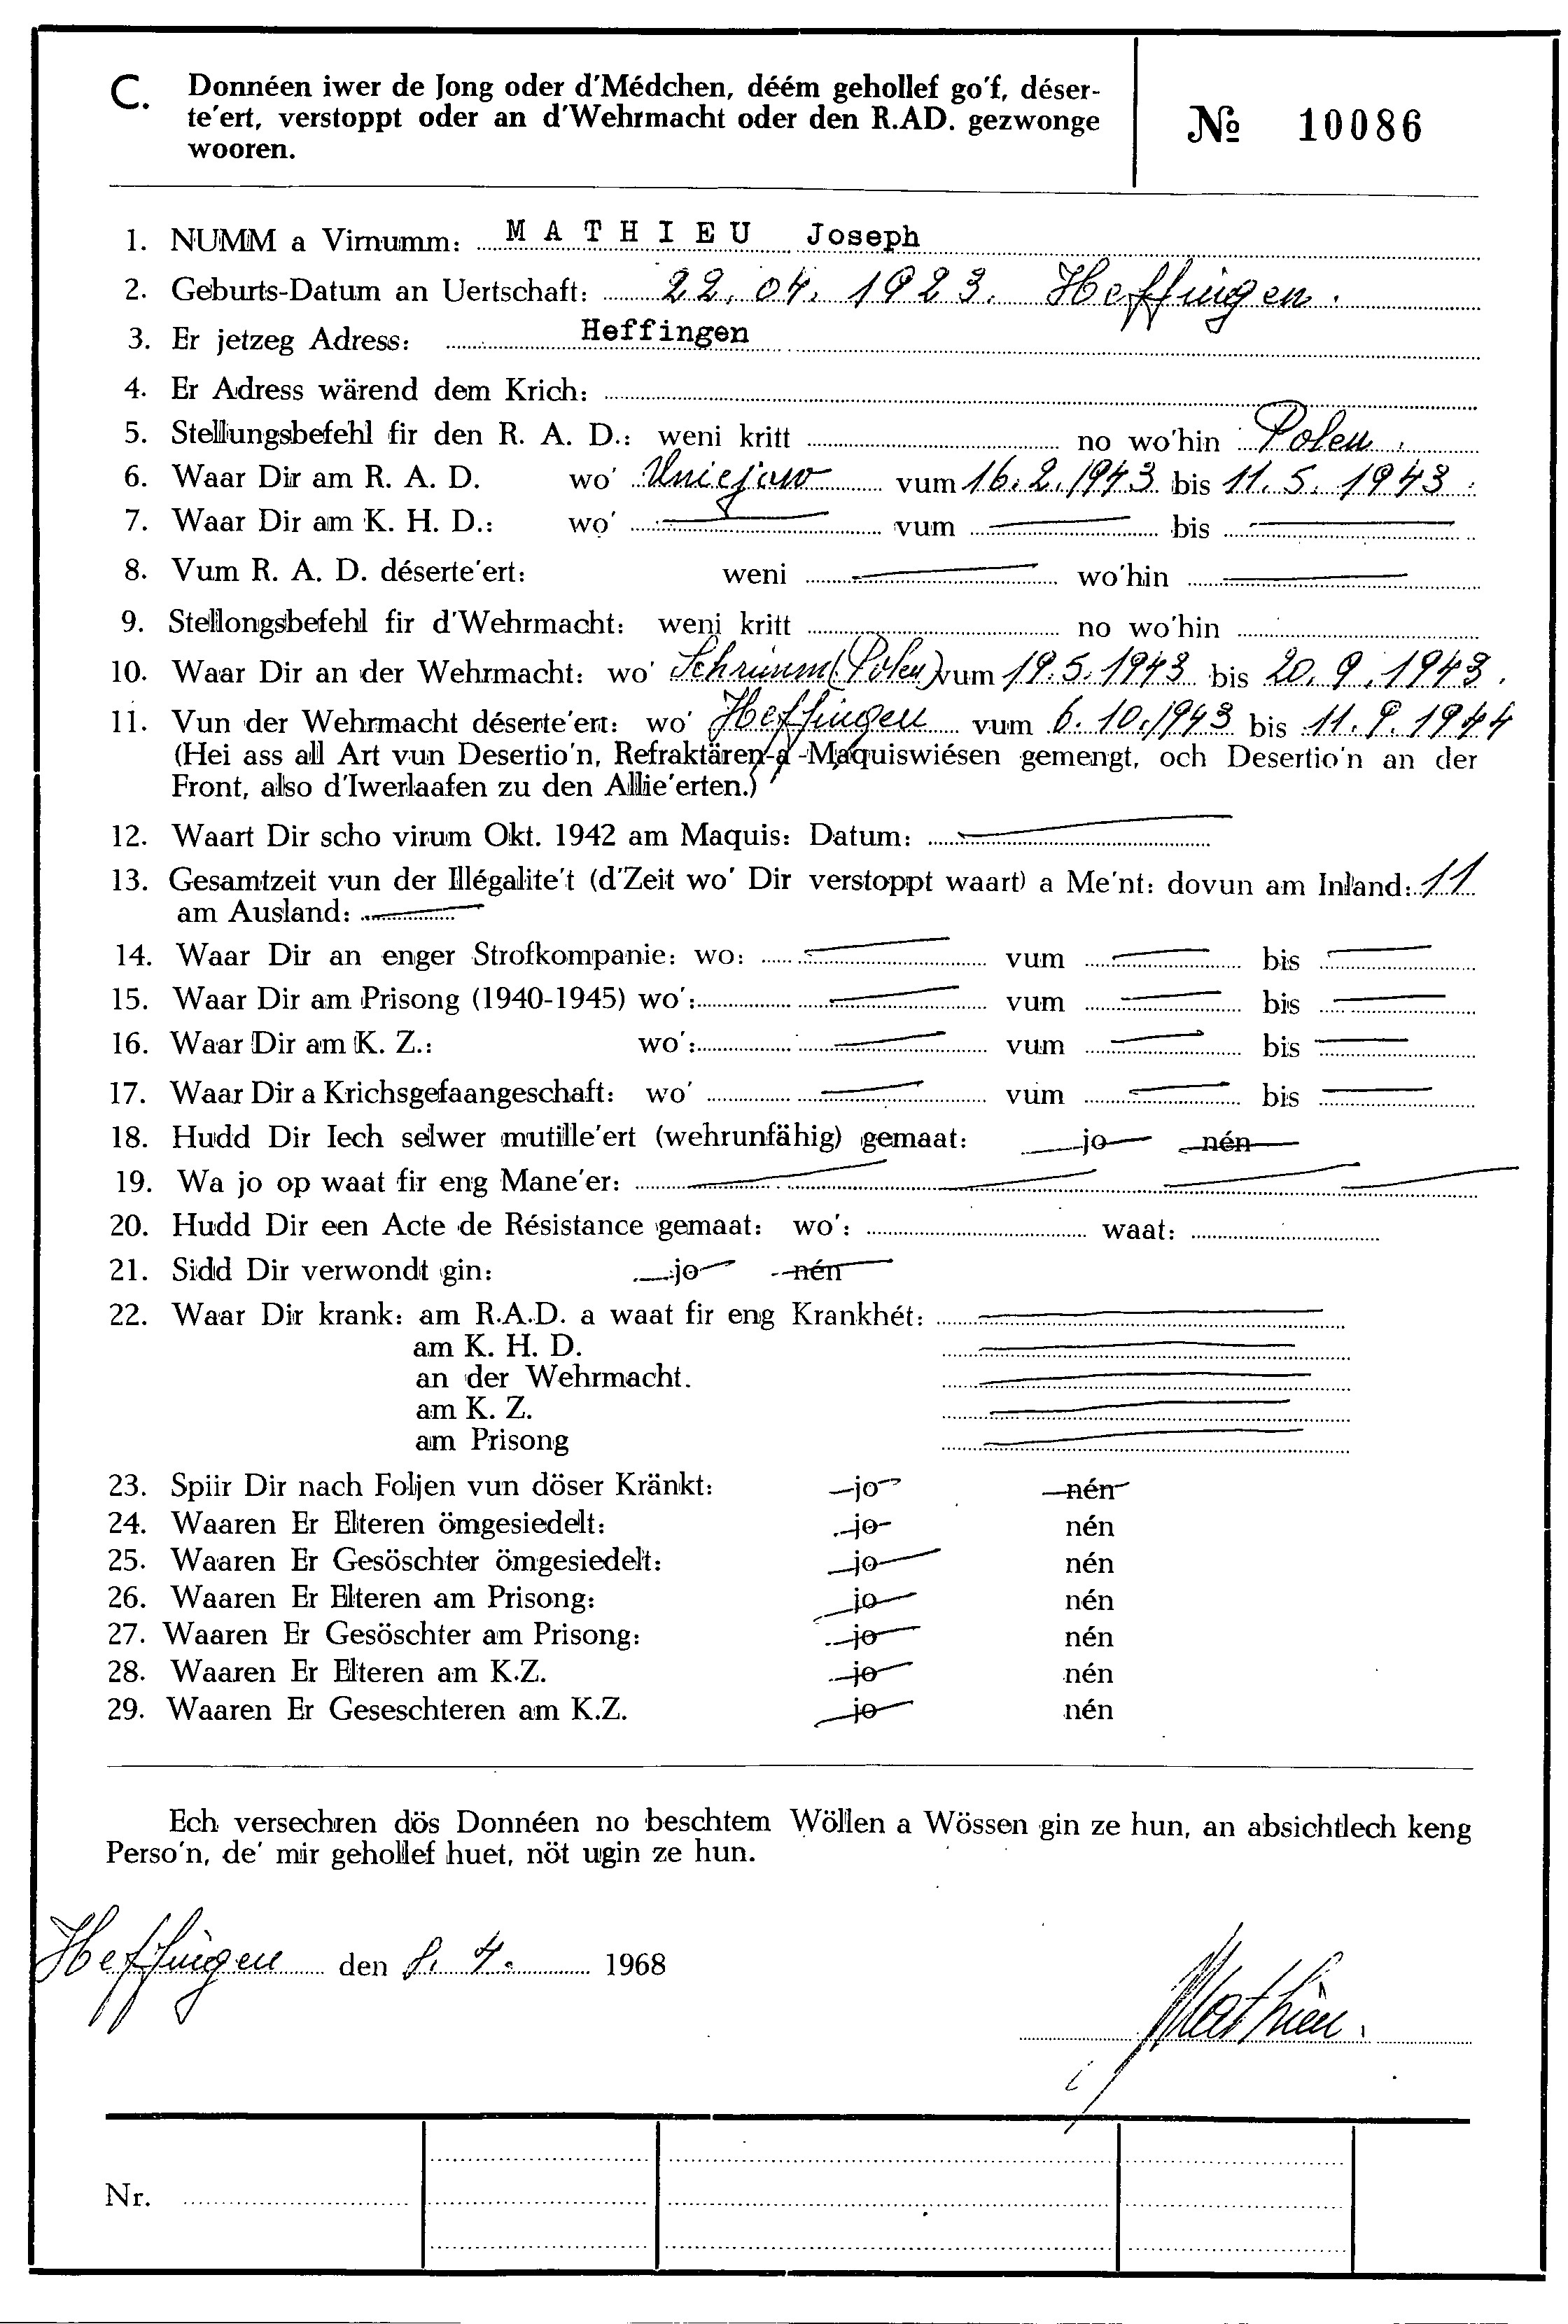 C. Donnéen iwer de Jong oder d'Médchen, déém gehollef go'f, déser-
te'ert, verstoppt oder an d'Wehrmacht oder den R.AD. gezwonge
wooren.
№ 10086
1. NUMM a Virnumm: MATHIEU Joseph
2. Geburts-Datum an Uertschaft: 22.04.1923. Heffingen.
3. Er jetzeg Adress: Heffingen
4. Er Adress wärend dem Krich:
5. Stellungsbefehl fir den R. A. D.: weni kritt no wo'hin Polen.
6. Waar Dir am R. A. D. wo' Uniejow vum 16.2.1943 bis 11.5.1943
7. Waar Dir am K. H. D.: wo' vum bis
8. Vum R. A. D. déserte'ert: weni wo'hin
9. Stellongsbefehl fir d'Wehrmacht: weni kritt no wo'hin
10. Waar Dir an der Wehrmacht: wo' Schrimm (Polen) vum 19.5.1943 bis 20.9.1943.
11. Vun der Wehrmacht déserte'ert: wo' Heffingen vum 6.10.1943 bis 11.9.1944
(Hei ass all Art vun Desertio'n, Refraktären-a -Maquiswiésen gemengt, och Desertio'n an der
Front, also d'Iwerlaafen zu den Allie'erten.)
12. Waart Dir scho virum Okt. 1942 am Maquis: Datum:
13. Gesamtzeit vun der Illégalite't (d'Zeit wo' Dir verstoppt waart) a Me'nt: dovun am Inland: 11
am Ausland:
14. Waar Dir an enger Strofkompanie: wo: vum bis
15. Waar Dir am Prisong (1940-1945) wo': vum bis
16. Waar Dir am K. Z.: wo': vum bis
17. Waar Dir a Krichsgefaangeschaft: wo' vum bis
18. Hudd Dir Iech selwer mutille'ert (wehrunfähig) gemaat: jo nén
19. Wa jo op waat fir eng Mane'er:
20. Hudd Dir een Acte de Résistance gemaat: wo': waat:
21. Sidd Dir verwondt gin: jo nén
22. Waar Dir krank: am R.A.D. a waat fir eng Krankhét:
am K. H. D.
an der Wehrmacht.
am K. Z.
am Prisong
23. Spiir Dir nach Foljen vun döser Kränkt: jo nén
24. Waaren Er Elteren ömgesiedelt: jo nén
25. Waaren Er Gesöschter ömgesiedelt: jo nén
26. Waaren Er Elteren am Prisong: jo nén
27. Waaren Er Gesöschter am Prisong: jo nén
28. Waaren Er Elteren am K.Z. jo nén
29. Waaren Er Geseschteren am K.Z. jo nén
Ech versechren dös Donnéen no beschtem Wöllen a Wössen gin ze hun, an absichtlech keng
Perso'n, de' mir gehollef huet, nöt ugin ze hun.
Heffingen den 8. 4. 1968
Mathieu.
Nr.